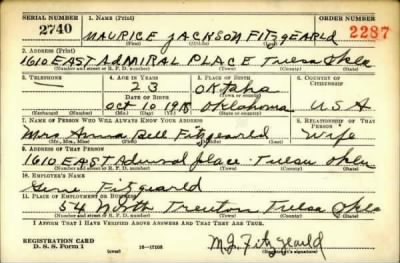 SERIAL NUMBER 1. NAME (Print) ORDER NUMBER
2740 MAURICE JACKSON FITZGEARLD 2287
(First) (Middle) (Last)
2. ADDRESS (Print)
1610 EAST ADMIRAL PLACE Tulsa Okla
(Number and street or R. F. D. number) (Town) (County) (State)
3. TELEPHONE 4. AGE IN YEARS 5. PLACE OF BIRTH 6. COUNTRY OF CITIZENSHIP
23 OKtaha
DATE OF BIRTH (Town or county)
Oct 10 1918 Oklahoma U.S.A.
(Mo.) (Day) (Yr.) (State or country)
7. NAME OF PERSON WHO WILL ALWAYS KNOW YOUR ADDRESS 8. RELATIONSHIP OF THAT PERSON
Mrs Anna Bell Fitzgearld Wife
(Mr., Mrs., Miss) (First) (Middle) (Last)
9. ADDRESS OF THAT PERSON
1610 EAST Admiral place - Tulsa Okla
(Number and street or R. F. D. number) (Town) (County) (State)
10. EMPLOYER'S NAME
Gene Fitzgearld
11. PLACE OF EMPLOYMENT OR BUSINESS
54 North Trenton Tulsa Okla
(Number and street or R. F. D. number) (Town) (County) (State)
I AFFIRM THAT I HAVE VERIFIED ABOVE ANSWERS AND THAT THEY ARE TRUE.
REGISTRATION CARD
D. S. S. Form 1 16-17105 M.J. Fitzgearld
(Registrant's signature)